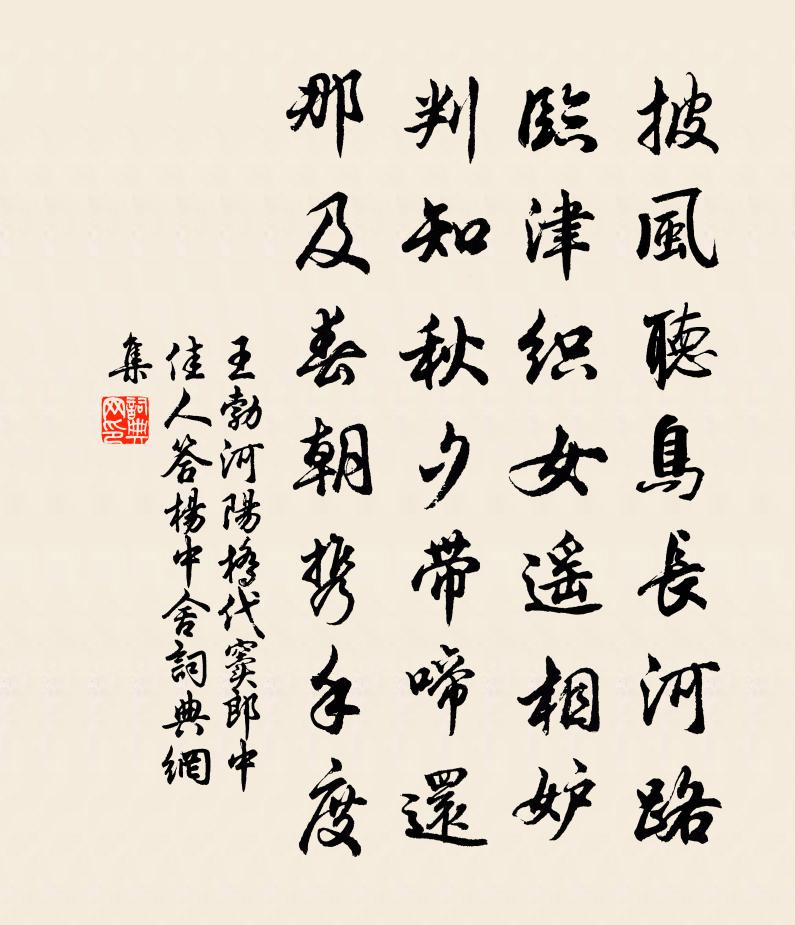 披風聽鳥長河路
臨津織女遥相妒
判知秋夕帶啼還
那及春朝携手度
王勃河陽橋代竇郎中
佳人答楊中舍詞典網
集
詞典
网印